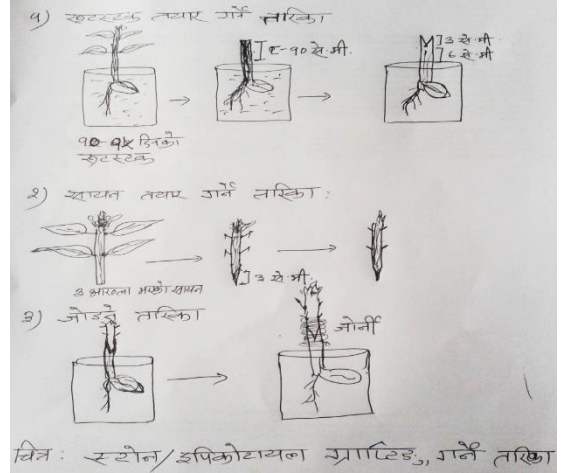 १) रुटस्टक तयार गर्ने तरिका
८-१० से.मी.
३ से.मी
६ से.मी
१०-१५ दिनको
रुटस्टक
२) सायन तयार गर्ने तरिका:
३ से.मी.
३ आँख्ला भएको सायन
३) जोड्ने तरिका
जोर्नी
चित्र: स्टोन/इपिकोटायल ग्राफ्टिङ्ग, गर्ने तरिका